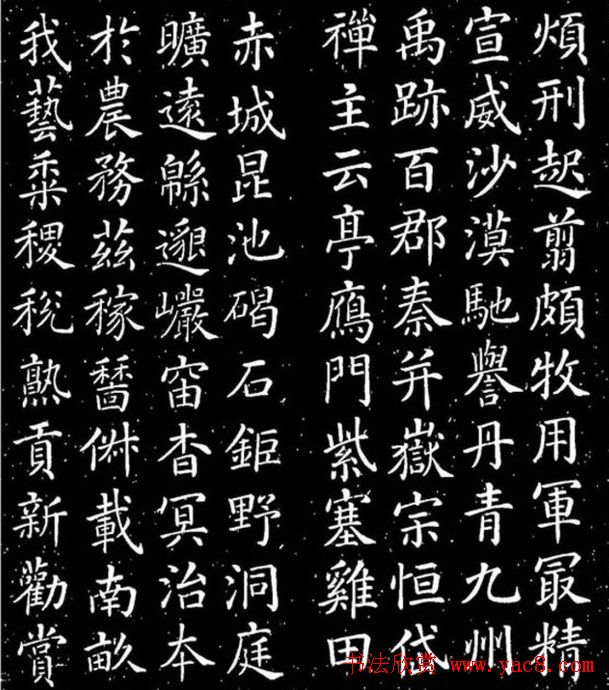 煩刑起翦頗牧用軍冣精
宣威沙漠馳譽丹青九州
禹跡百郡秦并嶽宗恒代
禪主云亭鴈門紫塞雞田
赤城昆池碣石鉅野洞庭
曠遠緜邈巖岫杳冥治本
於農務茲稼穡俶載南畝
我藝黍稷稅熟貢新勸賞
书法欣赏 www.yac8.com